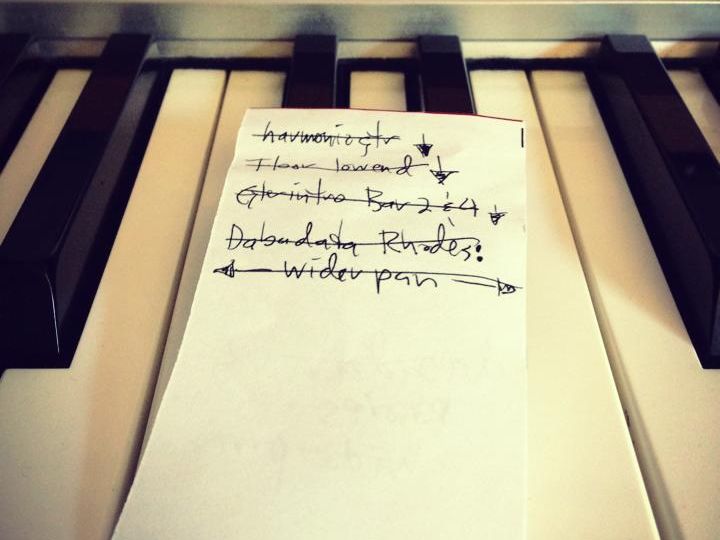 harmonic gtr ↓
Floor lowend ↓
Gtr intro Bar 2 & 4 ↓
Dabudata Rhodes:
← wider pan →